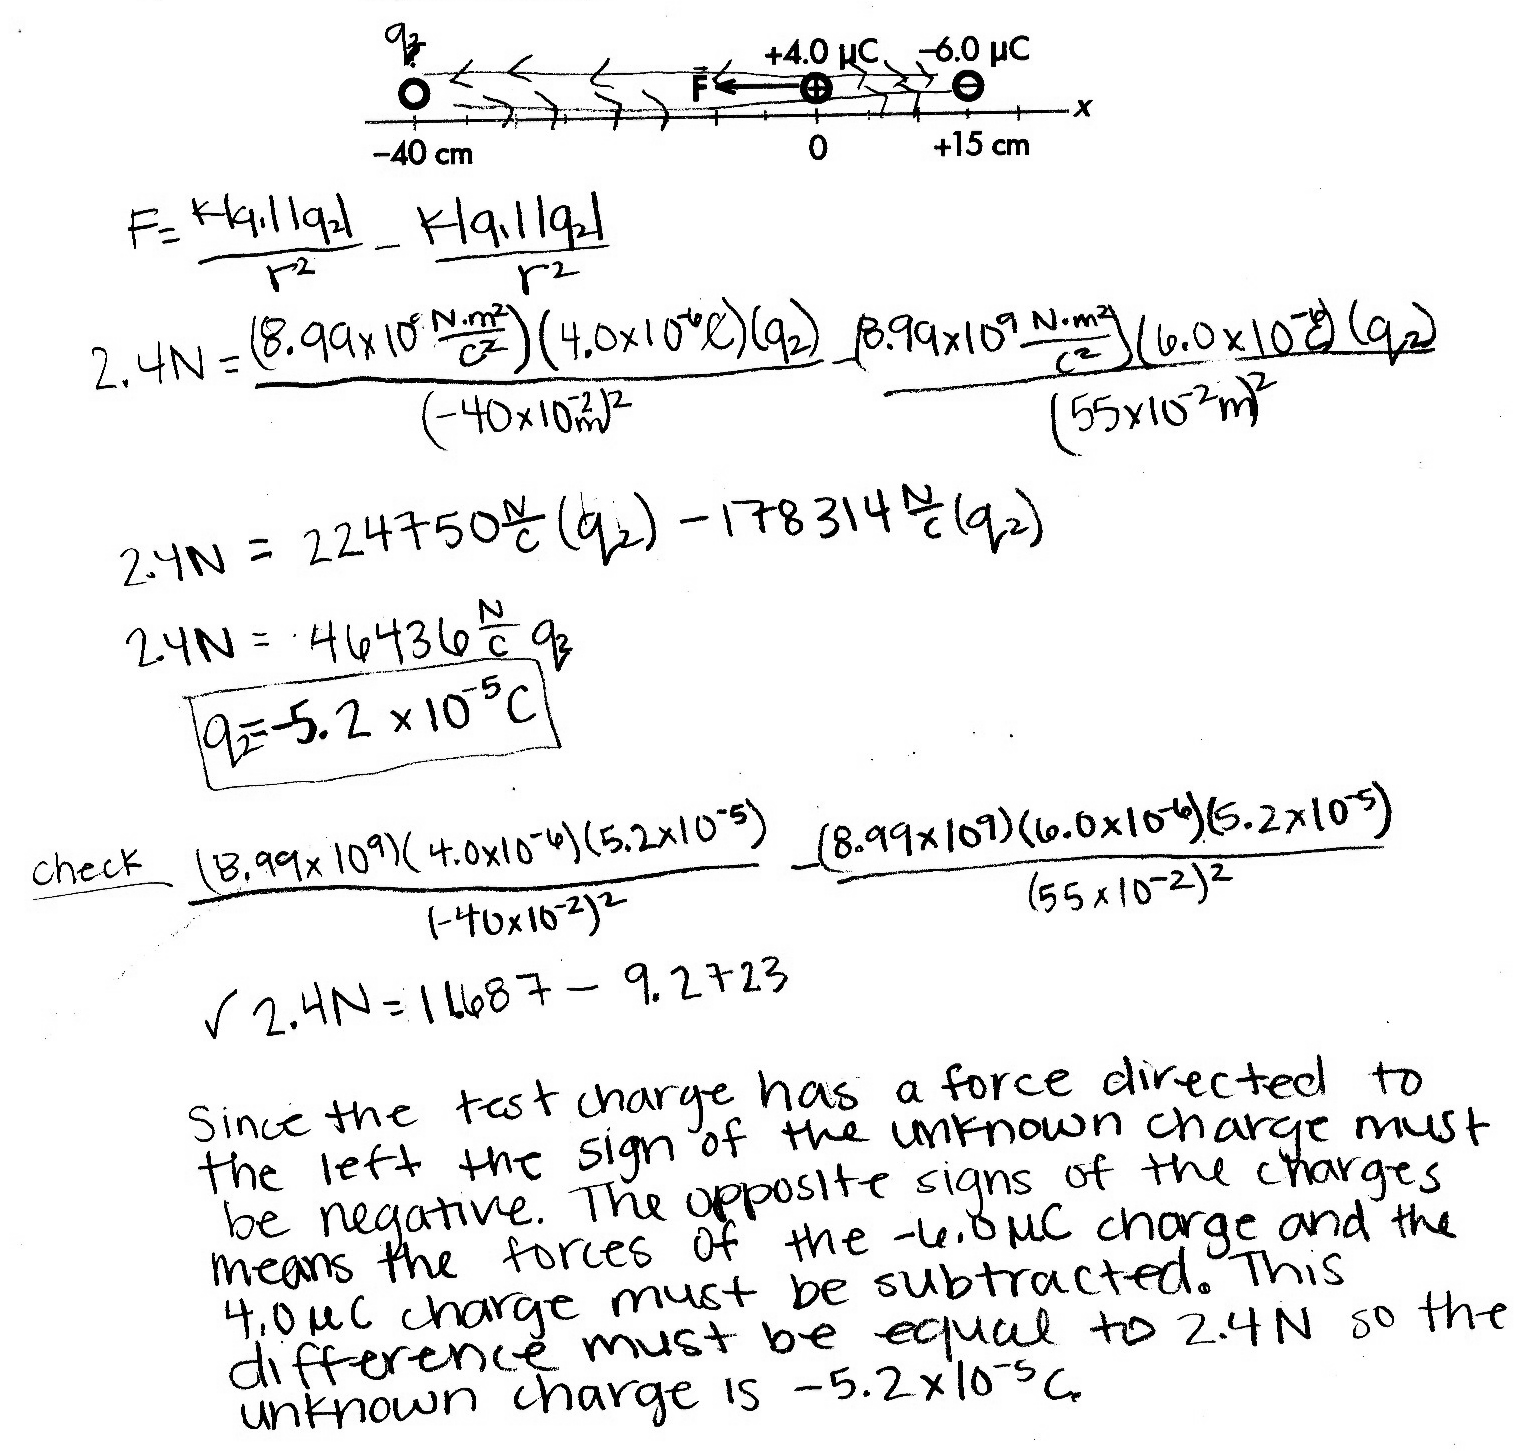 q₂
+4.0 µC -6.0 µC
F
x
-40 cm 0 +15 cm
F= k|q₁||q₂| / r² - k|q₁||q₂| / r²
2.4N = (8.99x10⁹ N·m²/C²)(4.0x10⁻⁶C)(q₂) / (-40x10⁻²m)² - (8.99x10⁹ N·m²/C²)(6.0x10⁻⁶C)(q₂) / (55x10⁻²m)²
2.4N = 224750 N/C (q₂) - 178314 N/C (q₂)
2.4N = 46436 N/C q₂
q₂=-5.2 x10⁻⁵C
check (8.99x10⁹)(4.0x10⁻⁶)(5.2x10⁻⁵) / (-40x10⁻²)² - (8.99x10⁹)(6.0x10⁻⁶)(5.2x10⁻⁵) / (55x10⁻²)²
✓ 2.4N=11.687 - 9.2723
Since the test charge has a force directed to
the left the sign of the unknown charge must
be negative. The opposite signs of the charges
means the forces of the -6.0 µC charge and the
4.0 µC charge must be subtracted. This
difference must be equal to 2.4N so the
unknown charge is -5.2x10⁻⁵C.